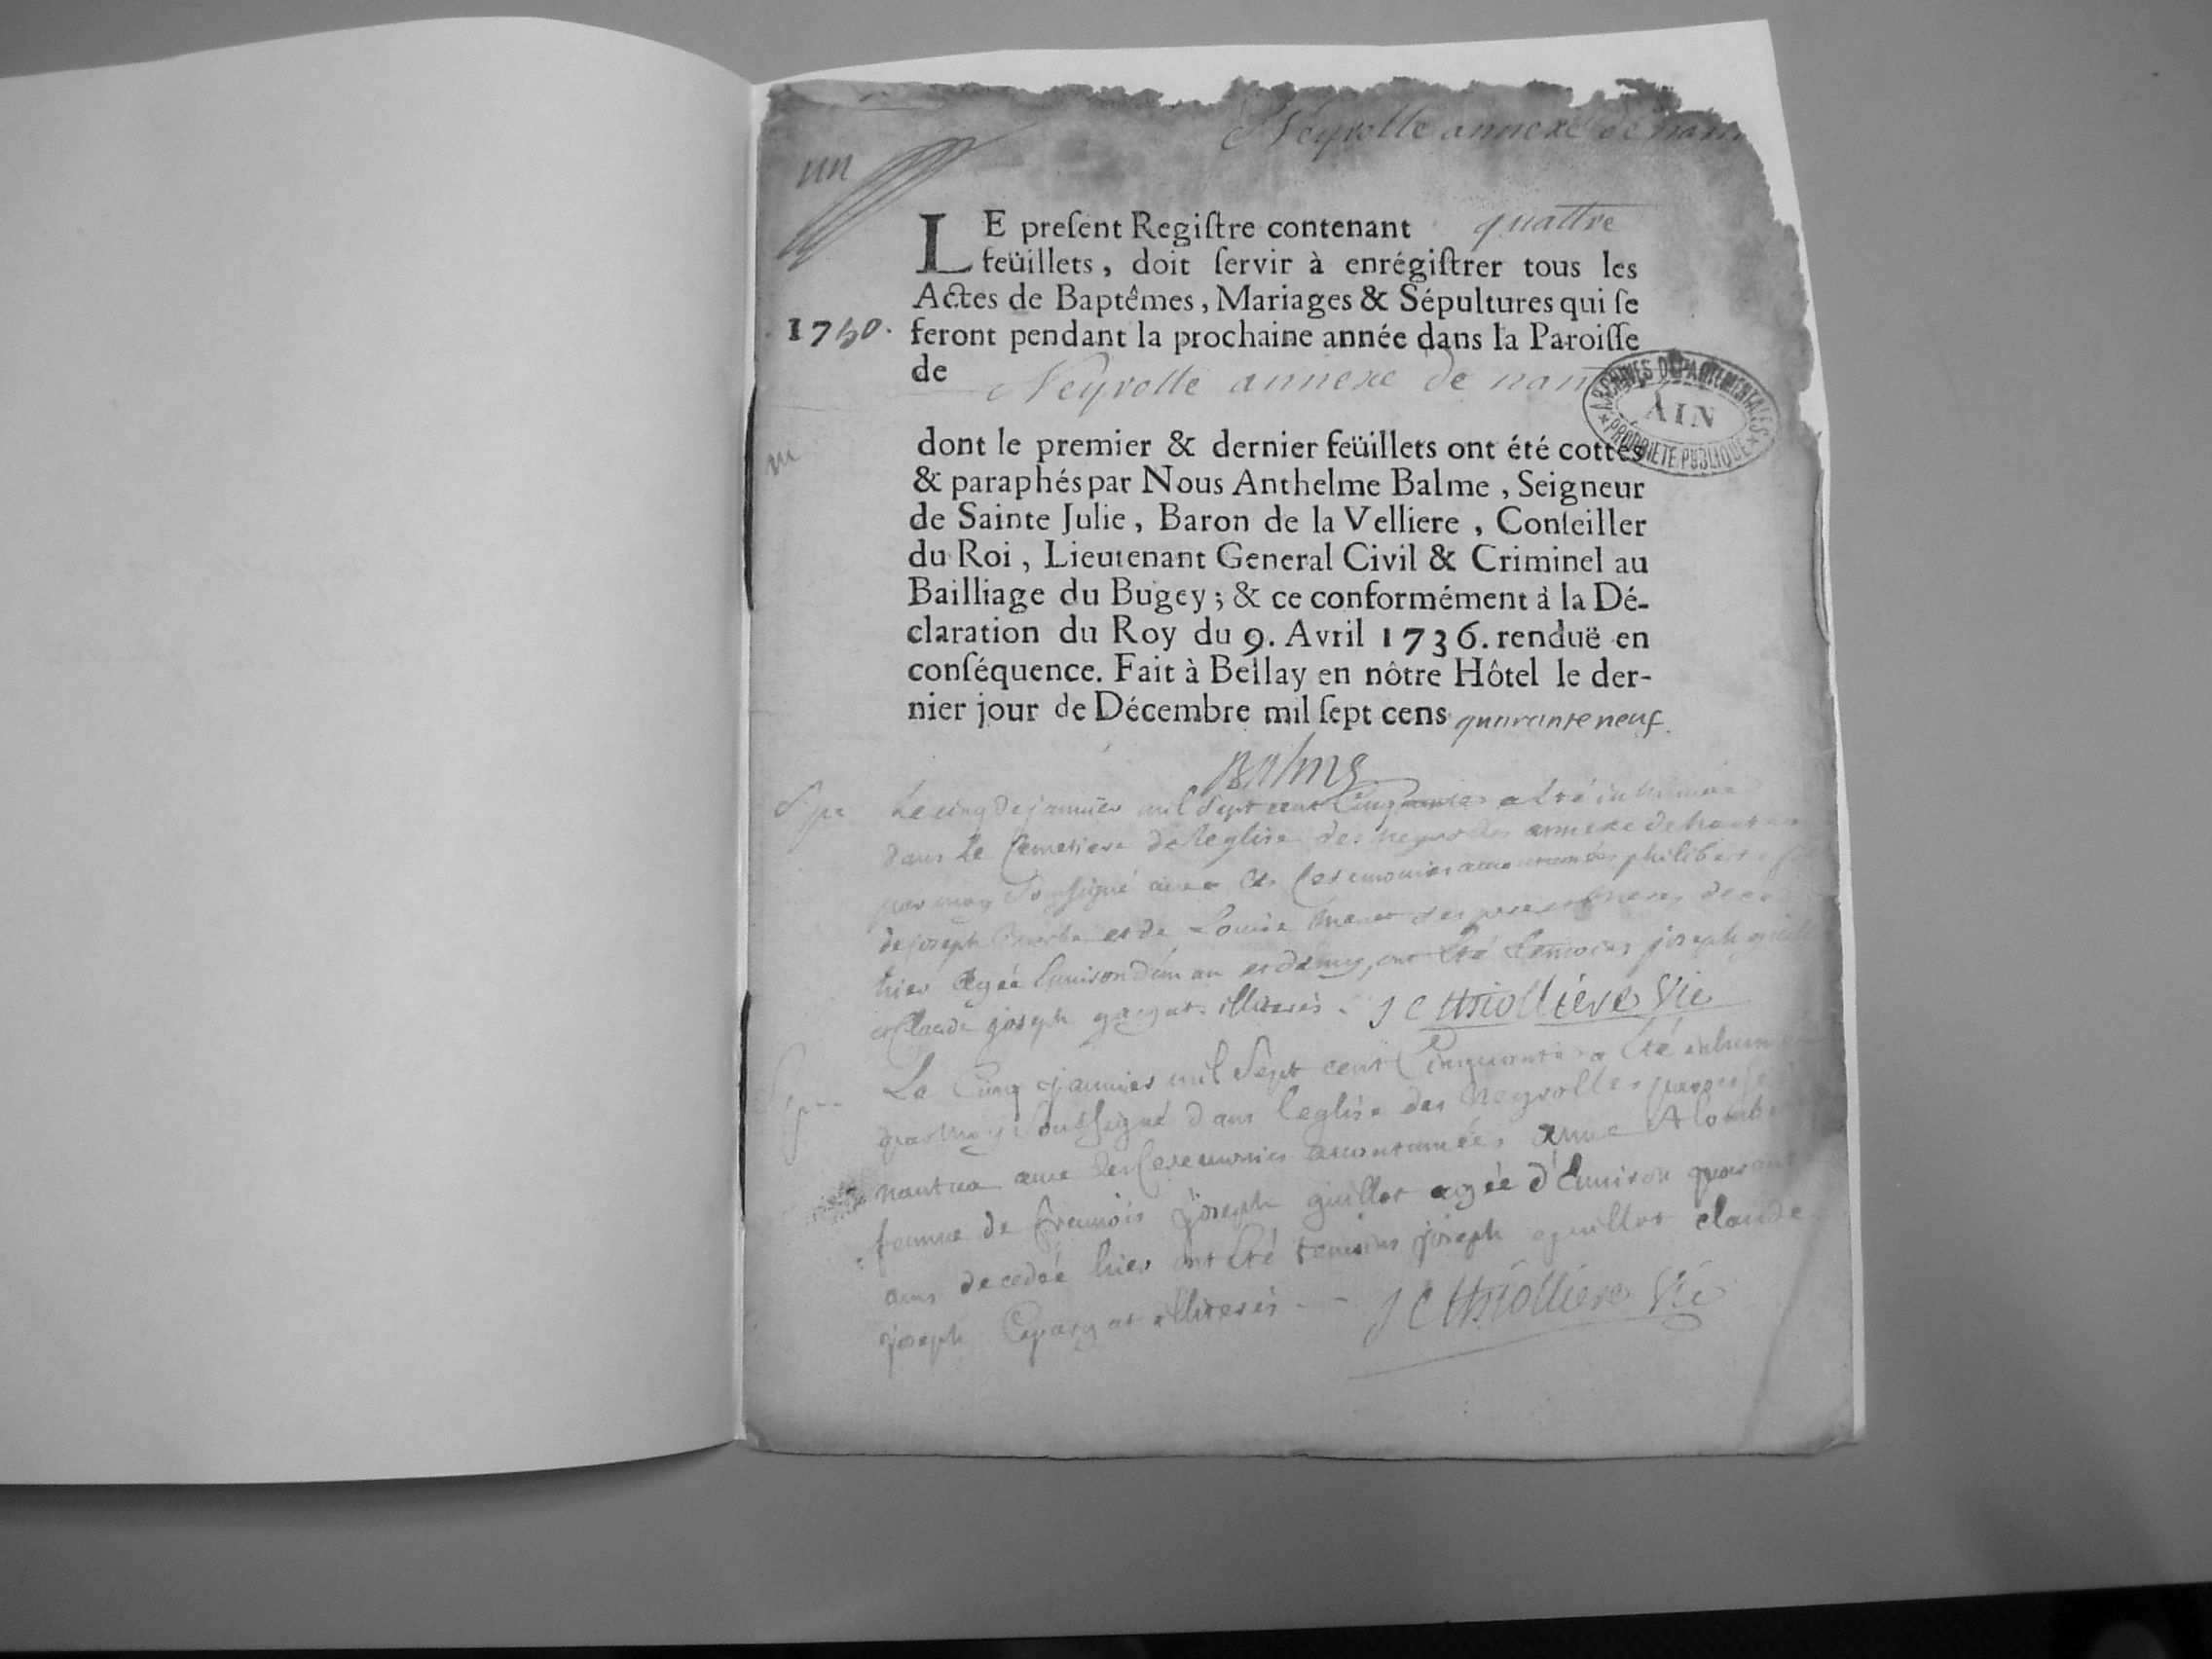 Neyrolle annexe de nan
un
LE preſent Regiſtre contenant quattre
feüillets, doit ſervir à enrégiſtrer tous les
Actes de Baptêmes, Mariages & Sépultures qui ſe
1750. feront pendant la prochaine année dans la Paroiſſe
de Neyrolle annexe de nan
ARCHIVES DEPARTEMENTALES AIN PROPRIETE PUBLIQUE
dont le premier & dernier feüillets ont été cottés
& paraphés par Nous Anthelme Balme, Seigneur
de Sainte Julie, Baron de la Velliere, Conſeiller
du Roi, Lieutenant General Civil & Criminel au
Bailliage du Bugey; & ce conformément à la Dé-
claration du Roy du 9. Avril 1736. renduë en
conſéquence. Fait à Bellay en nôtre Hôtel le der-
nier jour de Décembre mil ſept cens quaranteneuf.
Balme
Le cinq de janvier mil sept cent Cinquante a été inhumé
dans Le Cemetiere de leglise des neyrolles annexe de
par moy soussigné avec les Ceremonies accoutumées philibert
de joseph et de Louise
hier agée Environ d'un an et demy, ont été temoins joseph
et Claude joseph illiterés. J C thiolliere Vic
Le Cinq janvier mil Sept cent Cinquante a été inhumée
par moy soussigné dans leglise des Neyrolles
nantua avec les Ceremonies accoutumées anne
femme de francois joseph guillot agée d'Environ
ans decedée hier ont été temoins joseph guillot claude
joseph illiterés - - J C thiolliere Vic